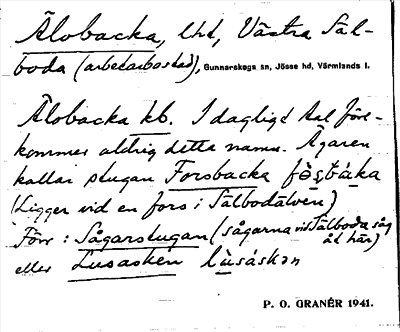 Älobacka, lht, Västra Säl-
boda (arbetarbostad), Gunnarskogs sn, Jösse hd, Värmlands l.
Älobacka kb. I dagligt tal före-
kommer aldrig detta namn. Ägaren
kallar stugan Forsbacka
(Ligger vid en fors i Sälbodälven)
Förr: Sågarstugan (sågarna vid Sälboda såg
åt här)
eller Lusasken lùsáskən
P. O. GRANÉR 1941.